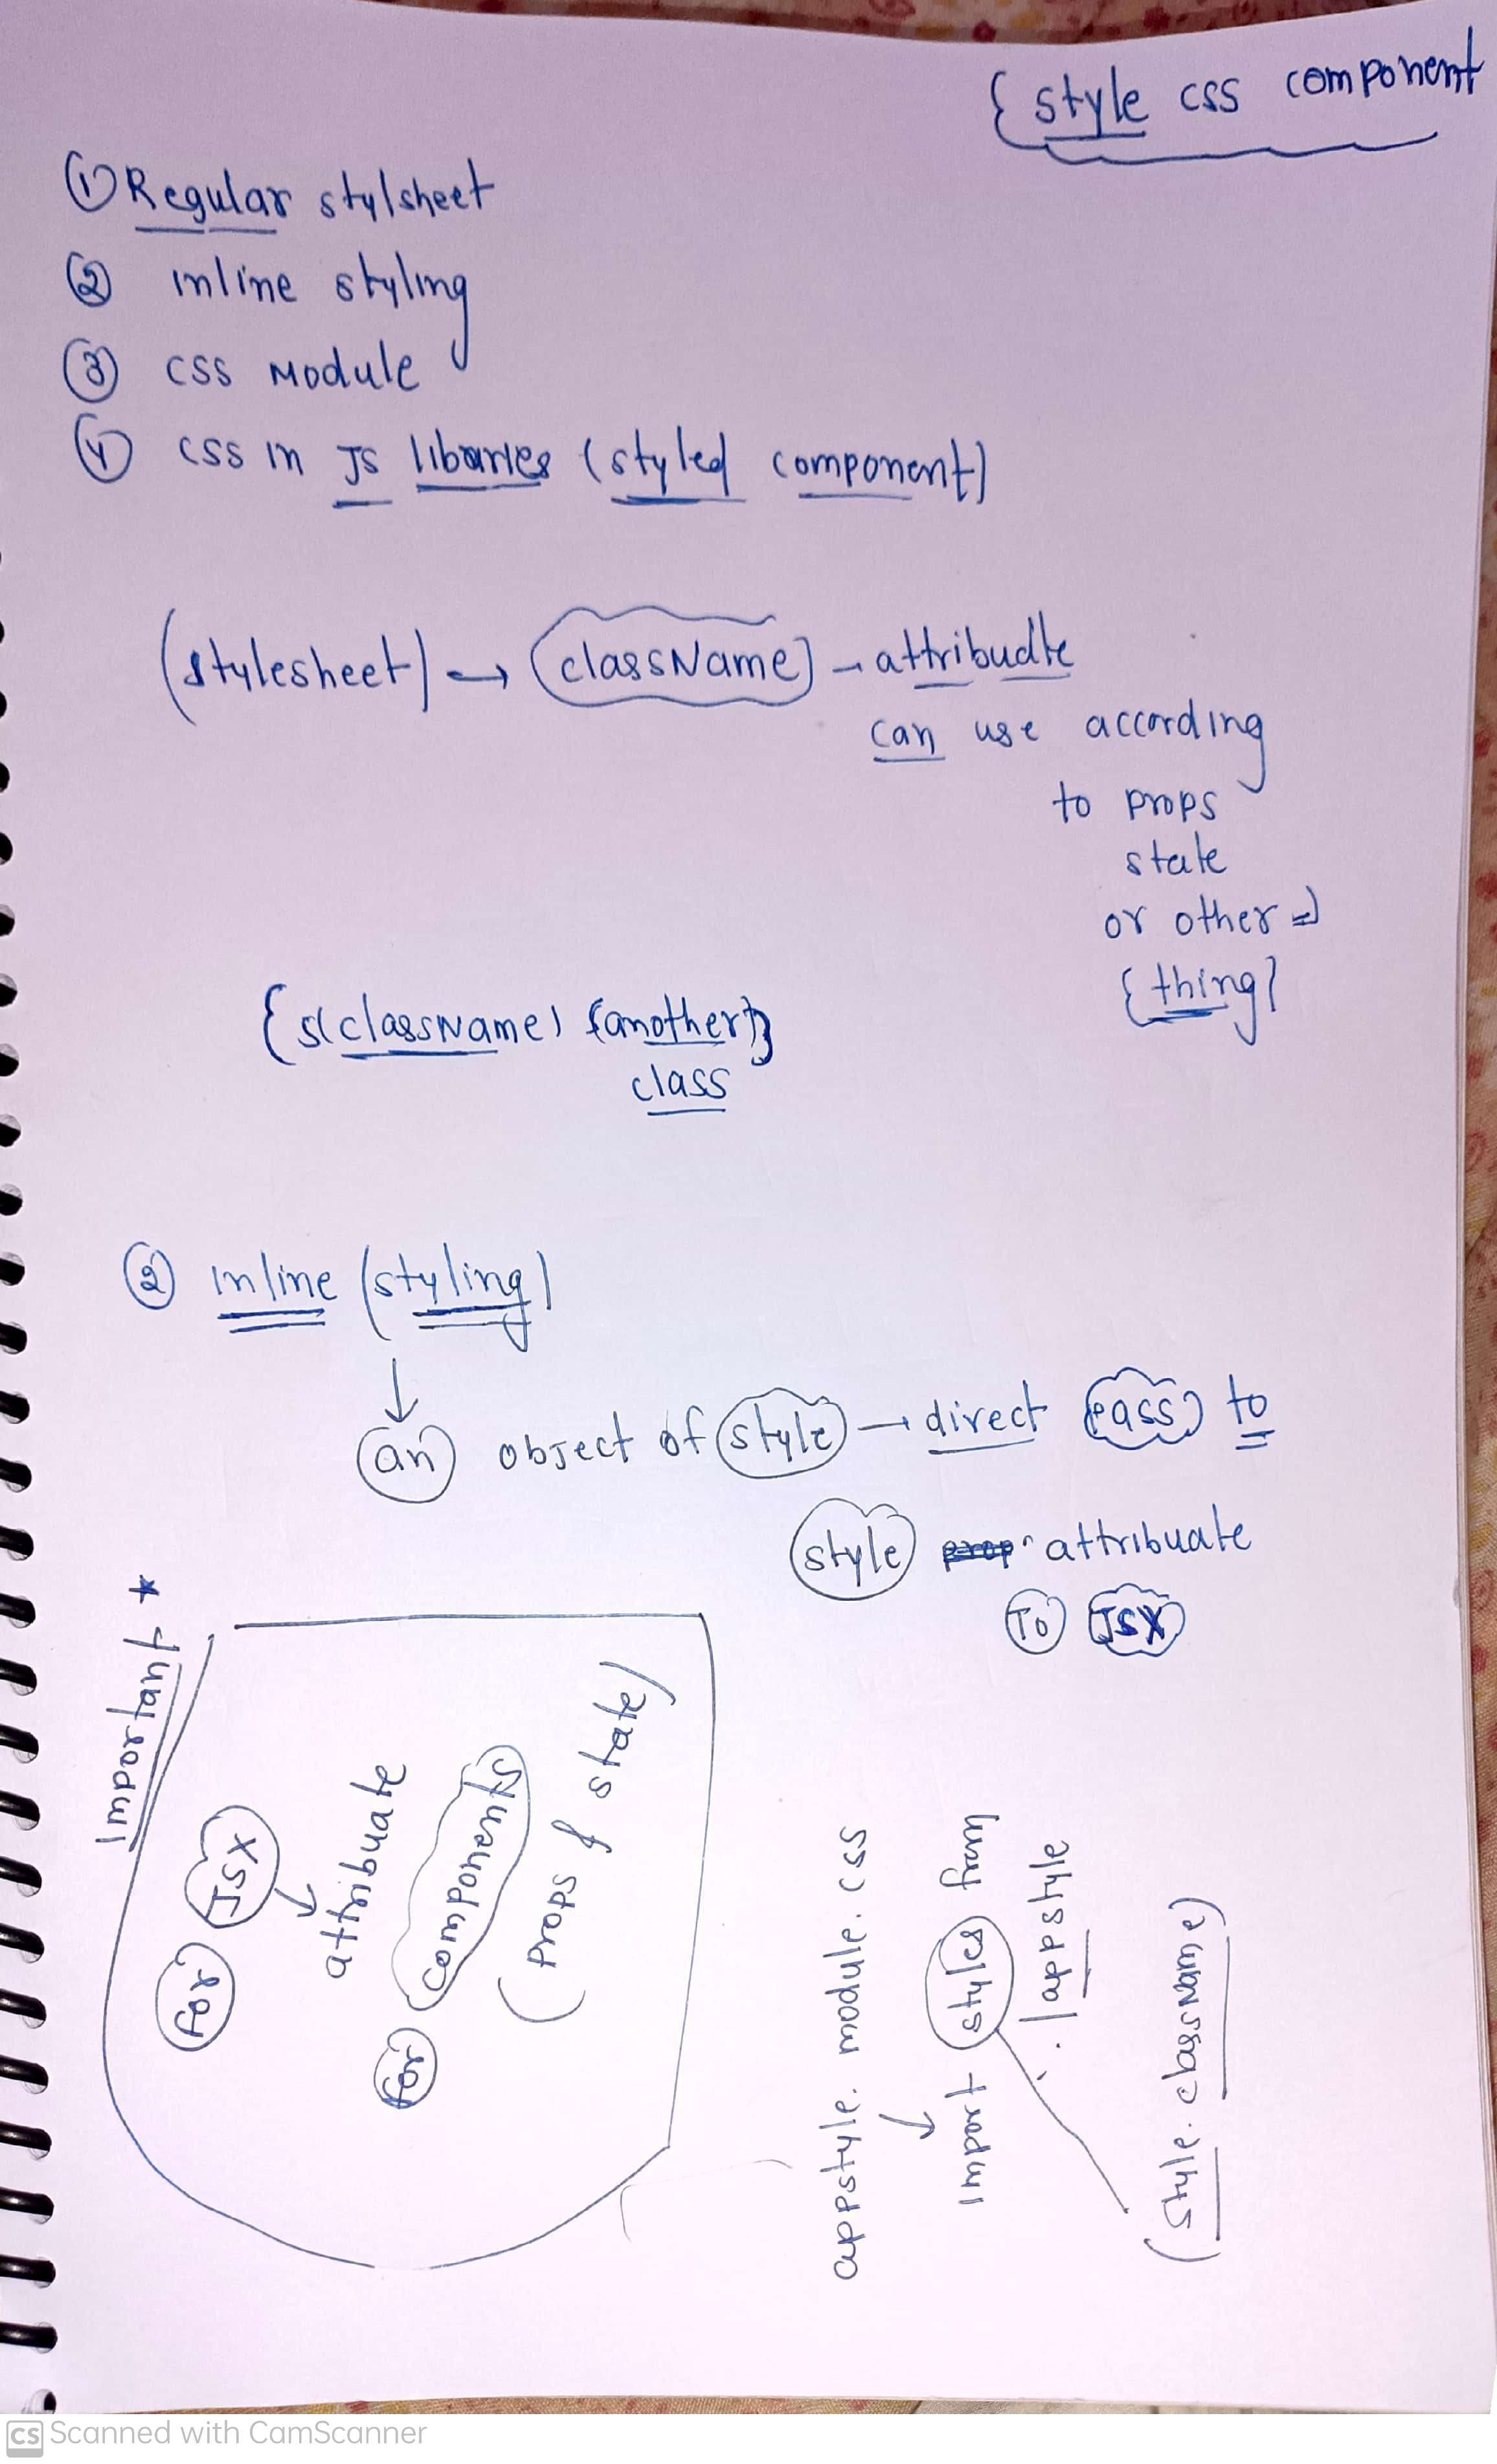 { style css component
① Regular stylsheet
② inline styling
③ css Module
④ css in JS libaries (styled component)
(stylesheet) → (className) → attribudte
can use according
to props
state
or other
{ thing }
className another
class
② inline (styling)
↓
an object of style → direct pass to
style attribuate
To JSX
Important *
for JSX
↓
attribuate
for components
(props & state)
appstyle. module. css
↓
import styles from
appstyle
(style. className)
CS Scanned with CamScanner